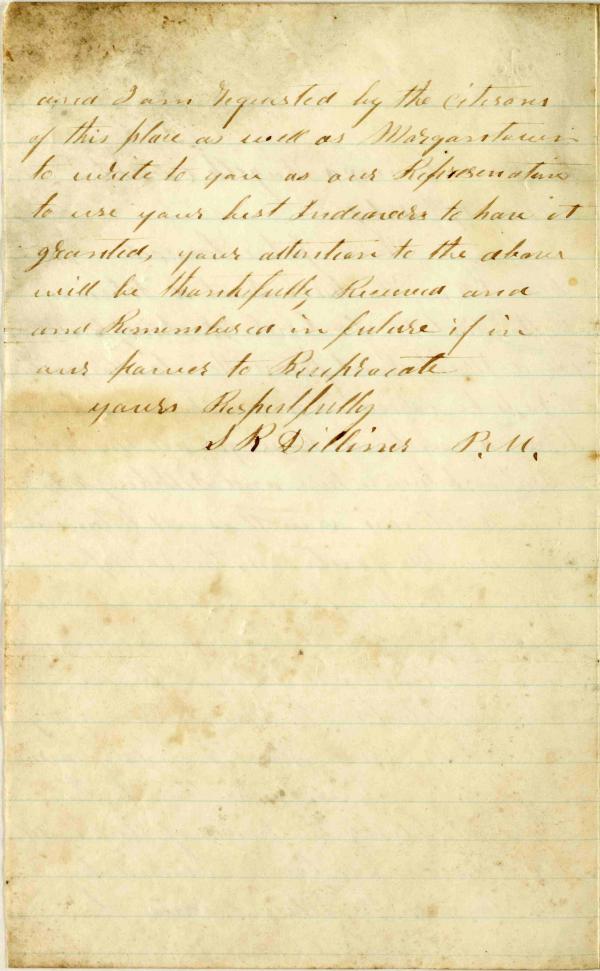 and I am Requested by the Citisons
of this place as well as Morgantown
to write to you as our Representative
to use your best Indeavers to have it
granted, your attention to the above
will be thankfully Received and
and Remembered in future if in
our power to Reciprocate
yours Respectfully
S R Dillinr P.M.